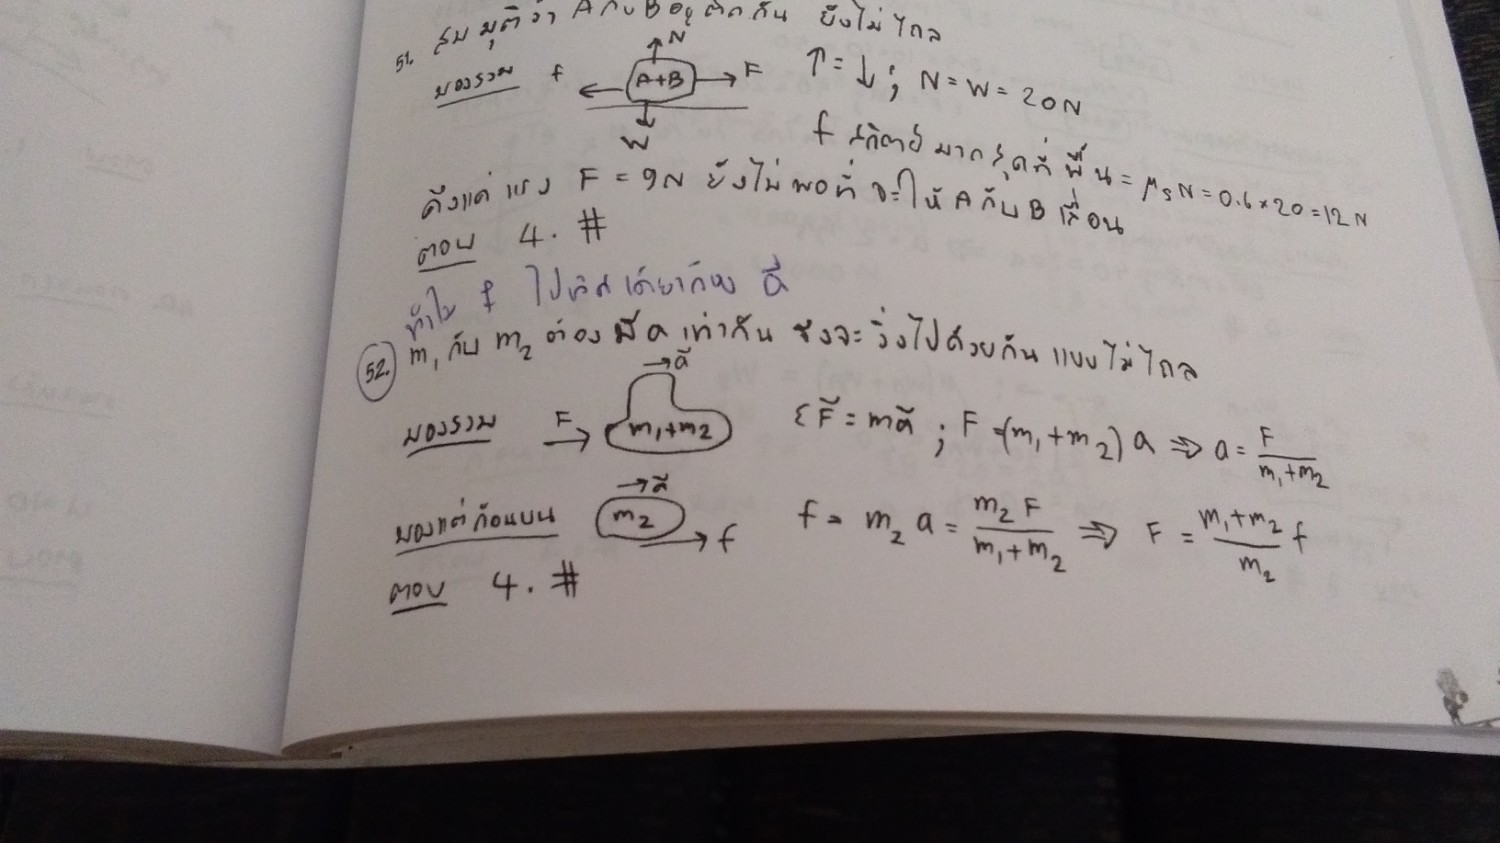 51. สมมุติว่า A กับ B อยู่ติดกัน ยังไม่ไถล
มองรวม f A+B F N W ↑ = ↓ ; N = W = 20 N
f สถิตย์ มากสุดที่ พื้น = μsN = 0.6 × 20 = 12 N
ดึงแค่ แรง F = 9N ยังไม่พอที่จะให้ A กับ B เลื่อน
ตอบ 4. #
ทำไม f ไปทิศเดียวกับ a⃗
52. m₁ กับ m₂ ต้องมี a เท่ากัน จึงจะ วิ่งไปด้วยกัน แบบไม่ไถล
มองรวม F → m₁+m₂ → a⃗ ΣF⃗ = ma⃗ ; F = (m₁+m₂) a ⇒ a = F/(m₁+m₂)
มองแต่ก้อนบน m₂ → a⃗ → f f = m₂ a = m₂F/(m₁+m₂) ⇒ F = (m₁+m₂)/m₂ f
ตอบ 4. #